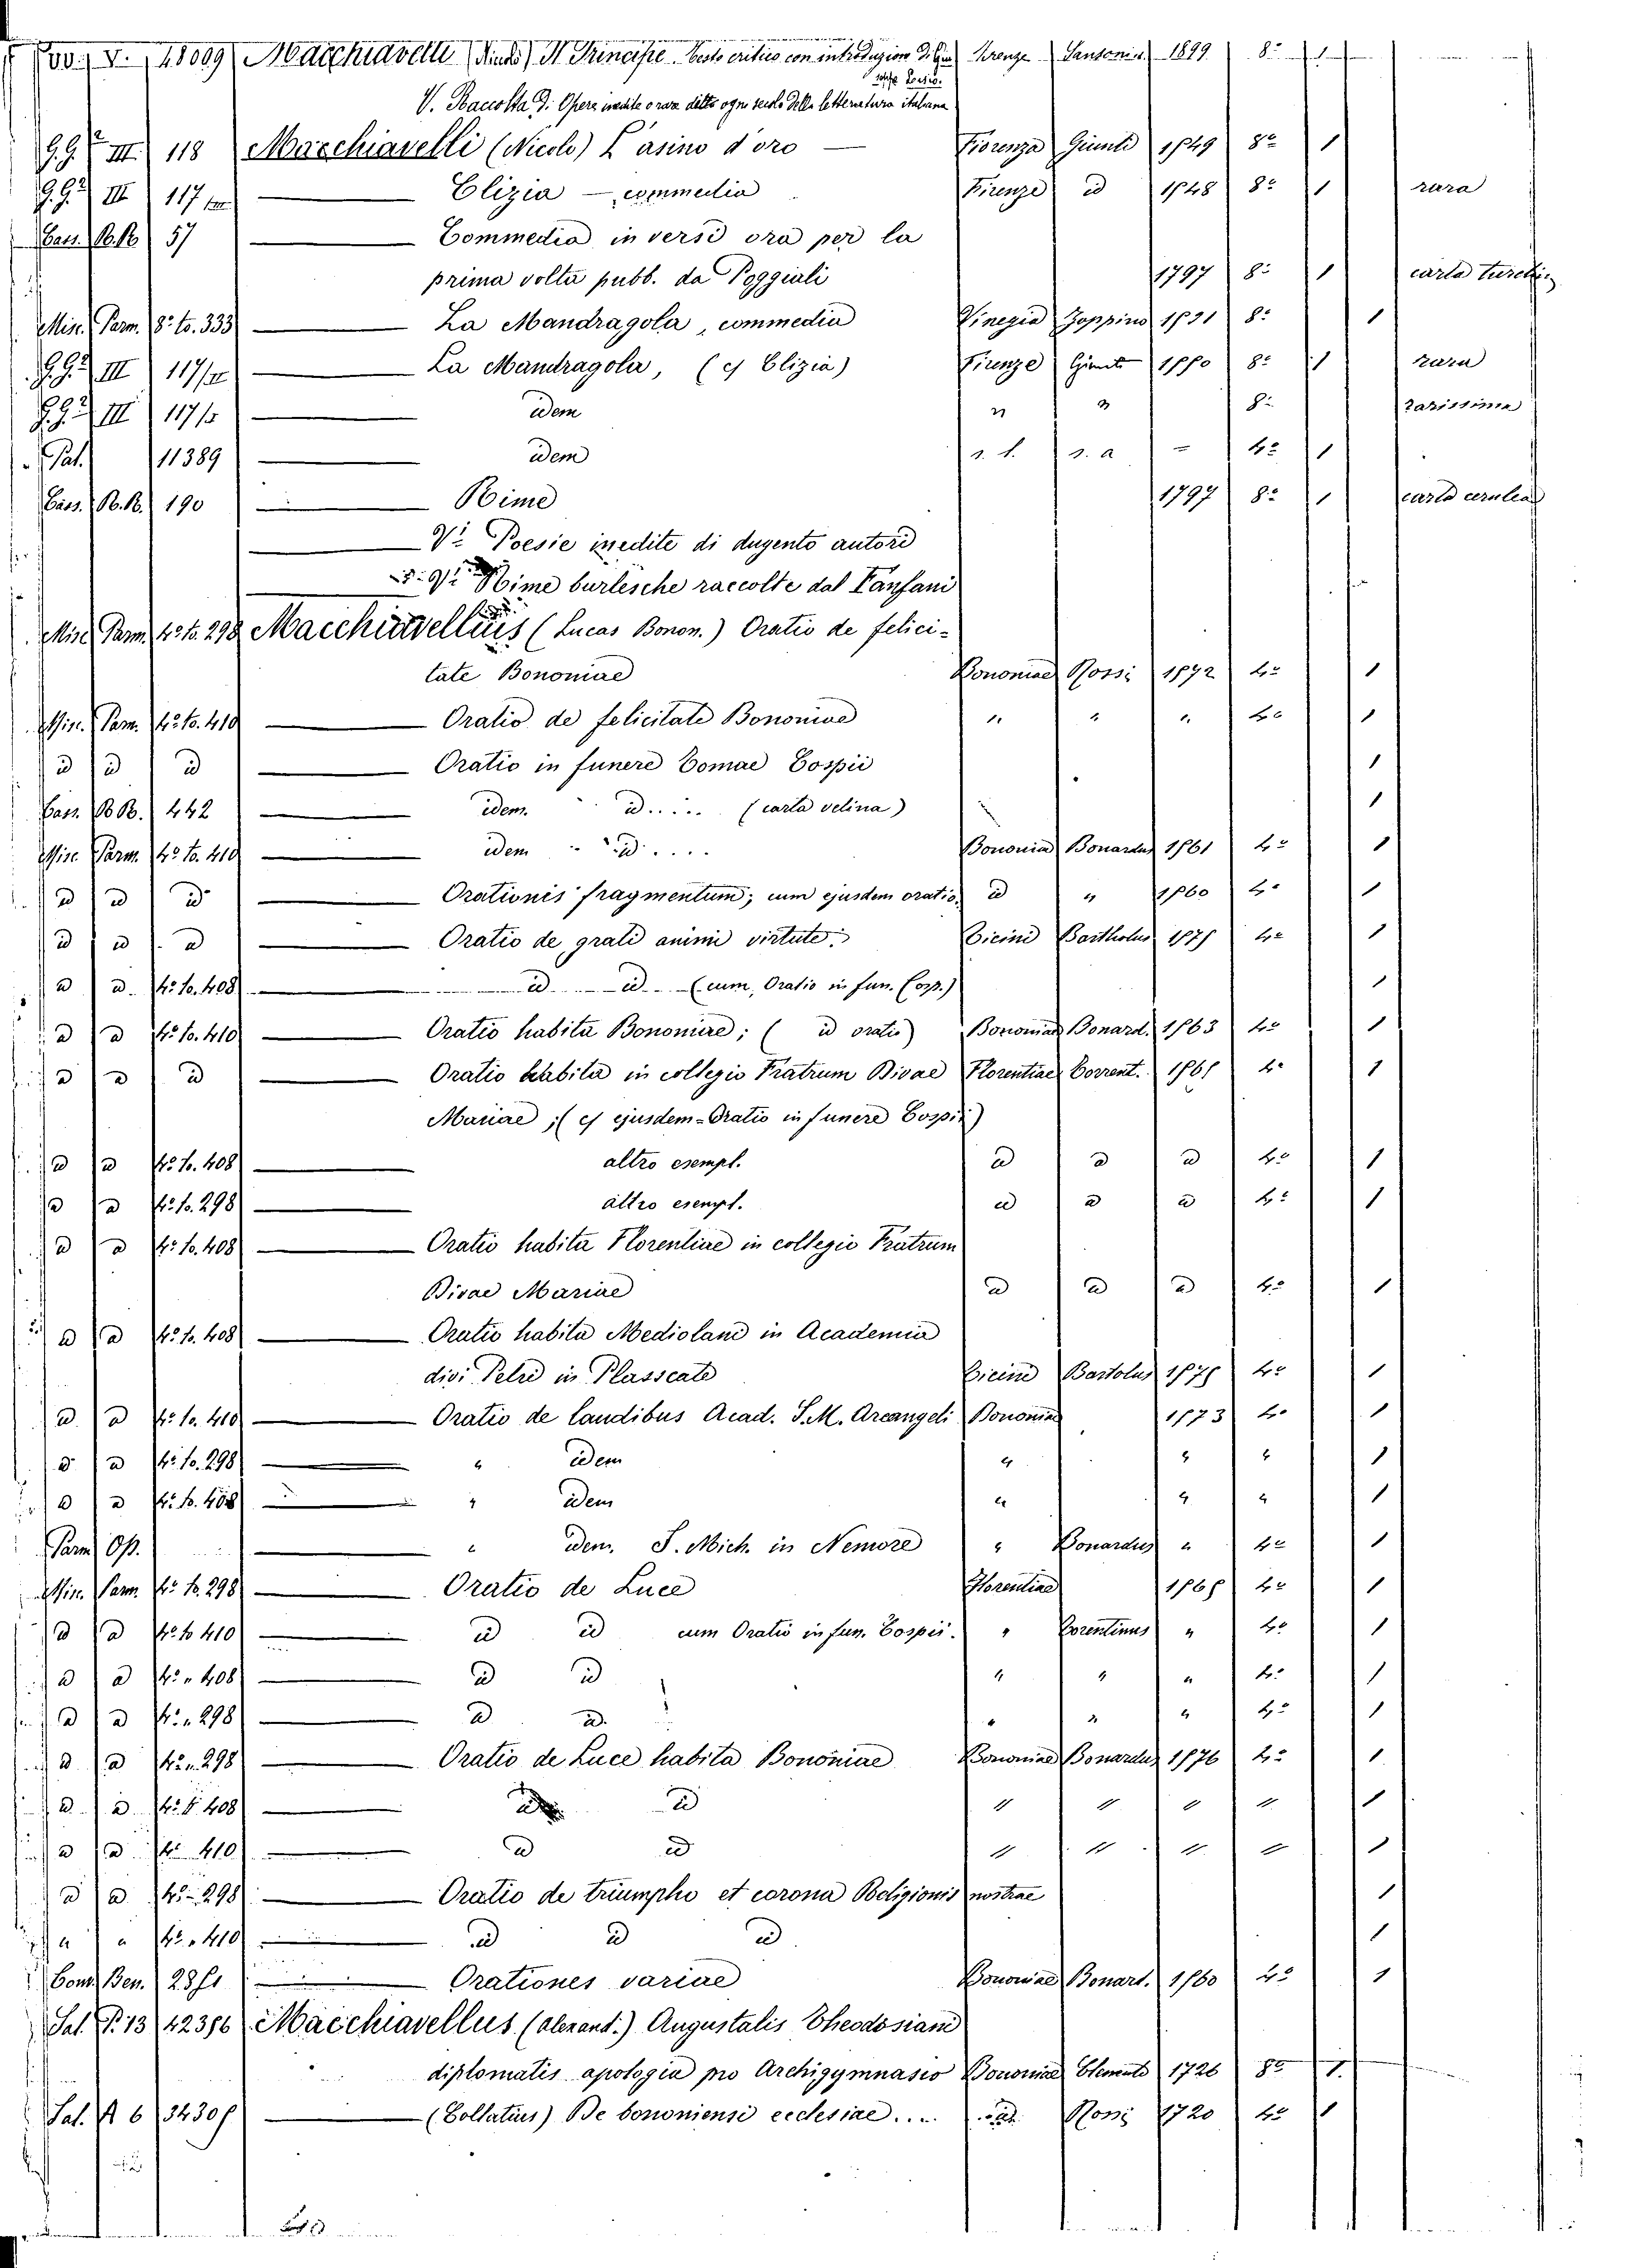 V. 18009 Macchiavelli Il Principe. Testo critico con introduzione Firenze Sansoni 1899 8º 1
V. Raccolta di Opere inedite o rare di ogni secolo della letteratura italiana
G.G. III 118 Macchiavelli (Nicolò) L'asino d'oro — Fiorenza Giunti 1549 8º 1
G.G. III 117 — Clizia — commedia Firenze id 1548 8º 1 rara
Cass. B.B. 57 — Commedia in versi ora per la
prima volta pubb. da Poggiali 1797 8º 1 carta turchin
Misc. Parm. 8º to. 333 — La Mandragola, commedia Vinegia Zoppino 1531 8º 1
G.G. III 117/ — La Mandragola, (et Clizia) Firenze Giunti 1550 8º 1 rara
G.G. III 117/ — idem " " 8º rarissima
Pal. 11389 — idem s. l. s. a - 4º 1
Cass. B.B. 190 — Rime 1797 8º 1 carta cerulea
— Vi Poesie inedite di dugento autori
Vi Rime burlesche raccolte dal Fanfani
Misc. Parm. 4º to. 298 Macchiavellius (Lucas Bonon.) Oratio de felici-
tate Bononiae Bononiae Rossi 1572 4º 1
Misc. Parm. 4º to. 410 — Oratio de felicitate Bononiae " " " 4º 1
id id id — Oratio in funere Comae Cospii 1
Cass. B.B. 442 — idem. id..... (carta velina) 1
Misc. Parm. 4º to. 410 — idem id.... Bononia Bonardus 1561 4º 1
id id id — Orationis fragmentum; cum ejusdem oratio id " 1560 4º 1
id id id — Oratio de grati animi virtute. Ticini Bartholus 1575 4º 1
id id. 4º to. 408 — id id (cum, Oratio in fun. Cosp.) 1
id id 4º to. 410 — Oratio habita Bononiae; ( id oratio) Bononiae Bonard. 1563 4º 1
id id id — Oratio habita in collegio Fratrum Divae Florentiae Torrent. 1565 4º 1
Mariae; (et ejusdem-Oratio in funere Cospii)
id id 4º to. 408 — altro esempl. id id id 4º 1
id id 4º to. 298 — altro esempl. id id id 4º 1
id id 4º to. 408 — Oratio habita Florentiae in collegio Fratrum
Divae Mariae id id id 4º 1
id id 4º to. 408 — Oratio habita Mediolani in Academia
divi Petri in Plasscate Ticini Bartolus 1575 4º 1
id id 4º to. 410 — Oratio de laudibus Acad. S.M. Arcangeli Bononiae 1573 4º 1
id id 4º to. 298 — " idem " " " 1
id id 4º to. 408 — " idem " " " 1
Parm. Op. — " idem. S. Mich. in Nemore " Bonardus " 4º 1
Misc. Parm. 4º to. 298 — Oratio de Luce Florentiae 1565 4º 1
id id 4º to 410 — id id cum Oratio in fun. Cospii. " Torentinus " 4º 1
id id 4º " 408 — id id " " " 4º 1
id id 4º " 298 — id id. " " " 4º 1
id id 4º " 298 — Oratio de Luce habita Bononiae Bononiae Bonardus 1576 4º 1
id id 4º 408 — id id " " " " 1
id id 4º 410 — id id " " " " 1
id id 4º 298 — Oratio de triumpho et corona Religionis nostrae 1
" " 4º " 410 — id id id 1
Com. Ben. 2851 — Orationes variae Bononiae Bonard. 1560 4º 1
Sal. P. 13 42356 Macchiavellus (alexand.) Augustalis Theodosiani
diplomatis apologia pro Archigymnasio Bononiae Clementi 1726 8º 1
Sal. A 6 34305 — (Collatius) De bononiensi ecclesiae.... id Rossi 1720 4º 1